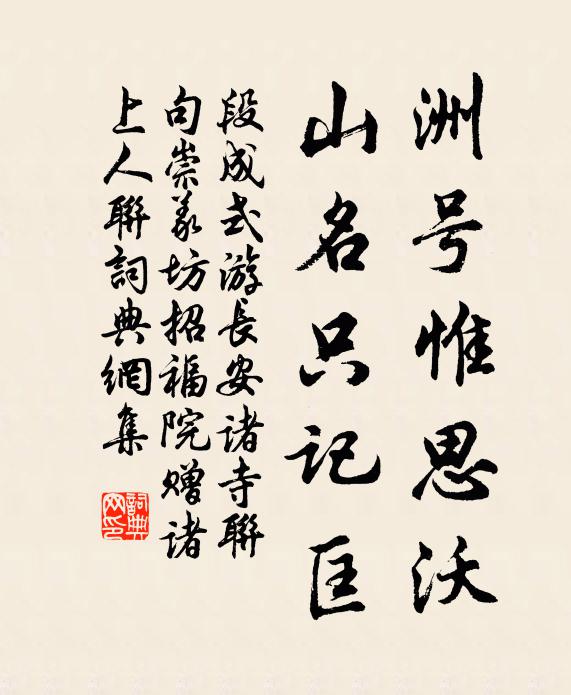 洲号惟思沃
山名只记匡
段成式游长安诸寺联
句崇义坊招福院赠诸
上人联 詞典網集
詞典網印